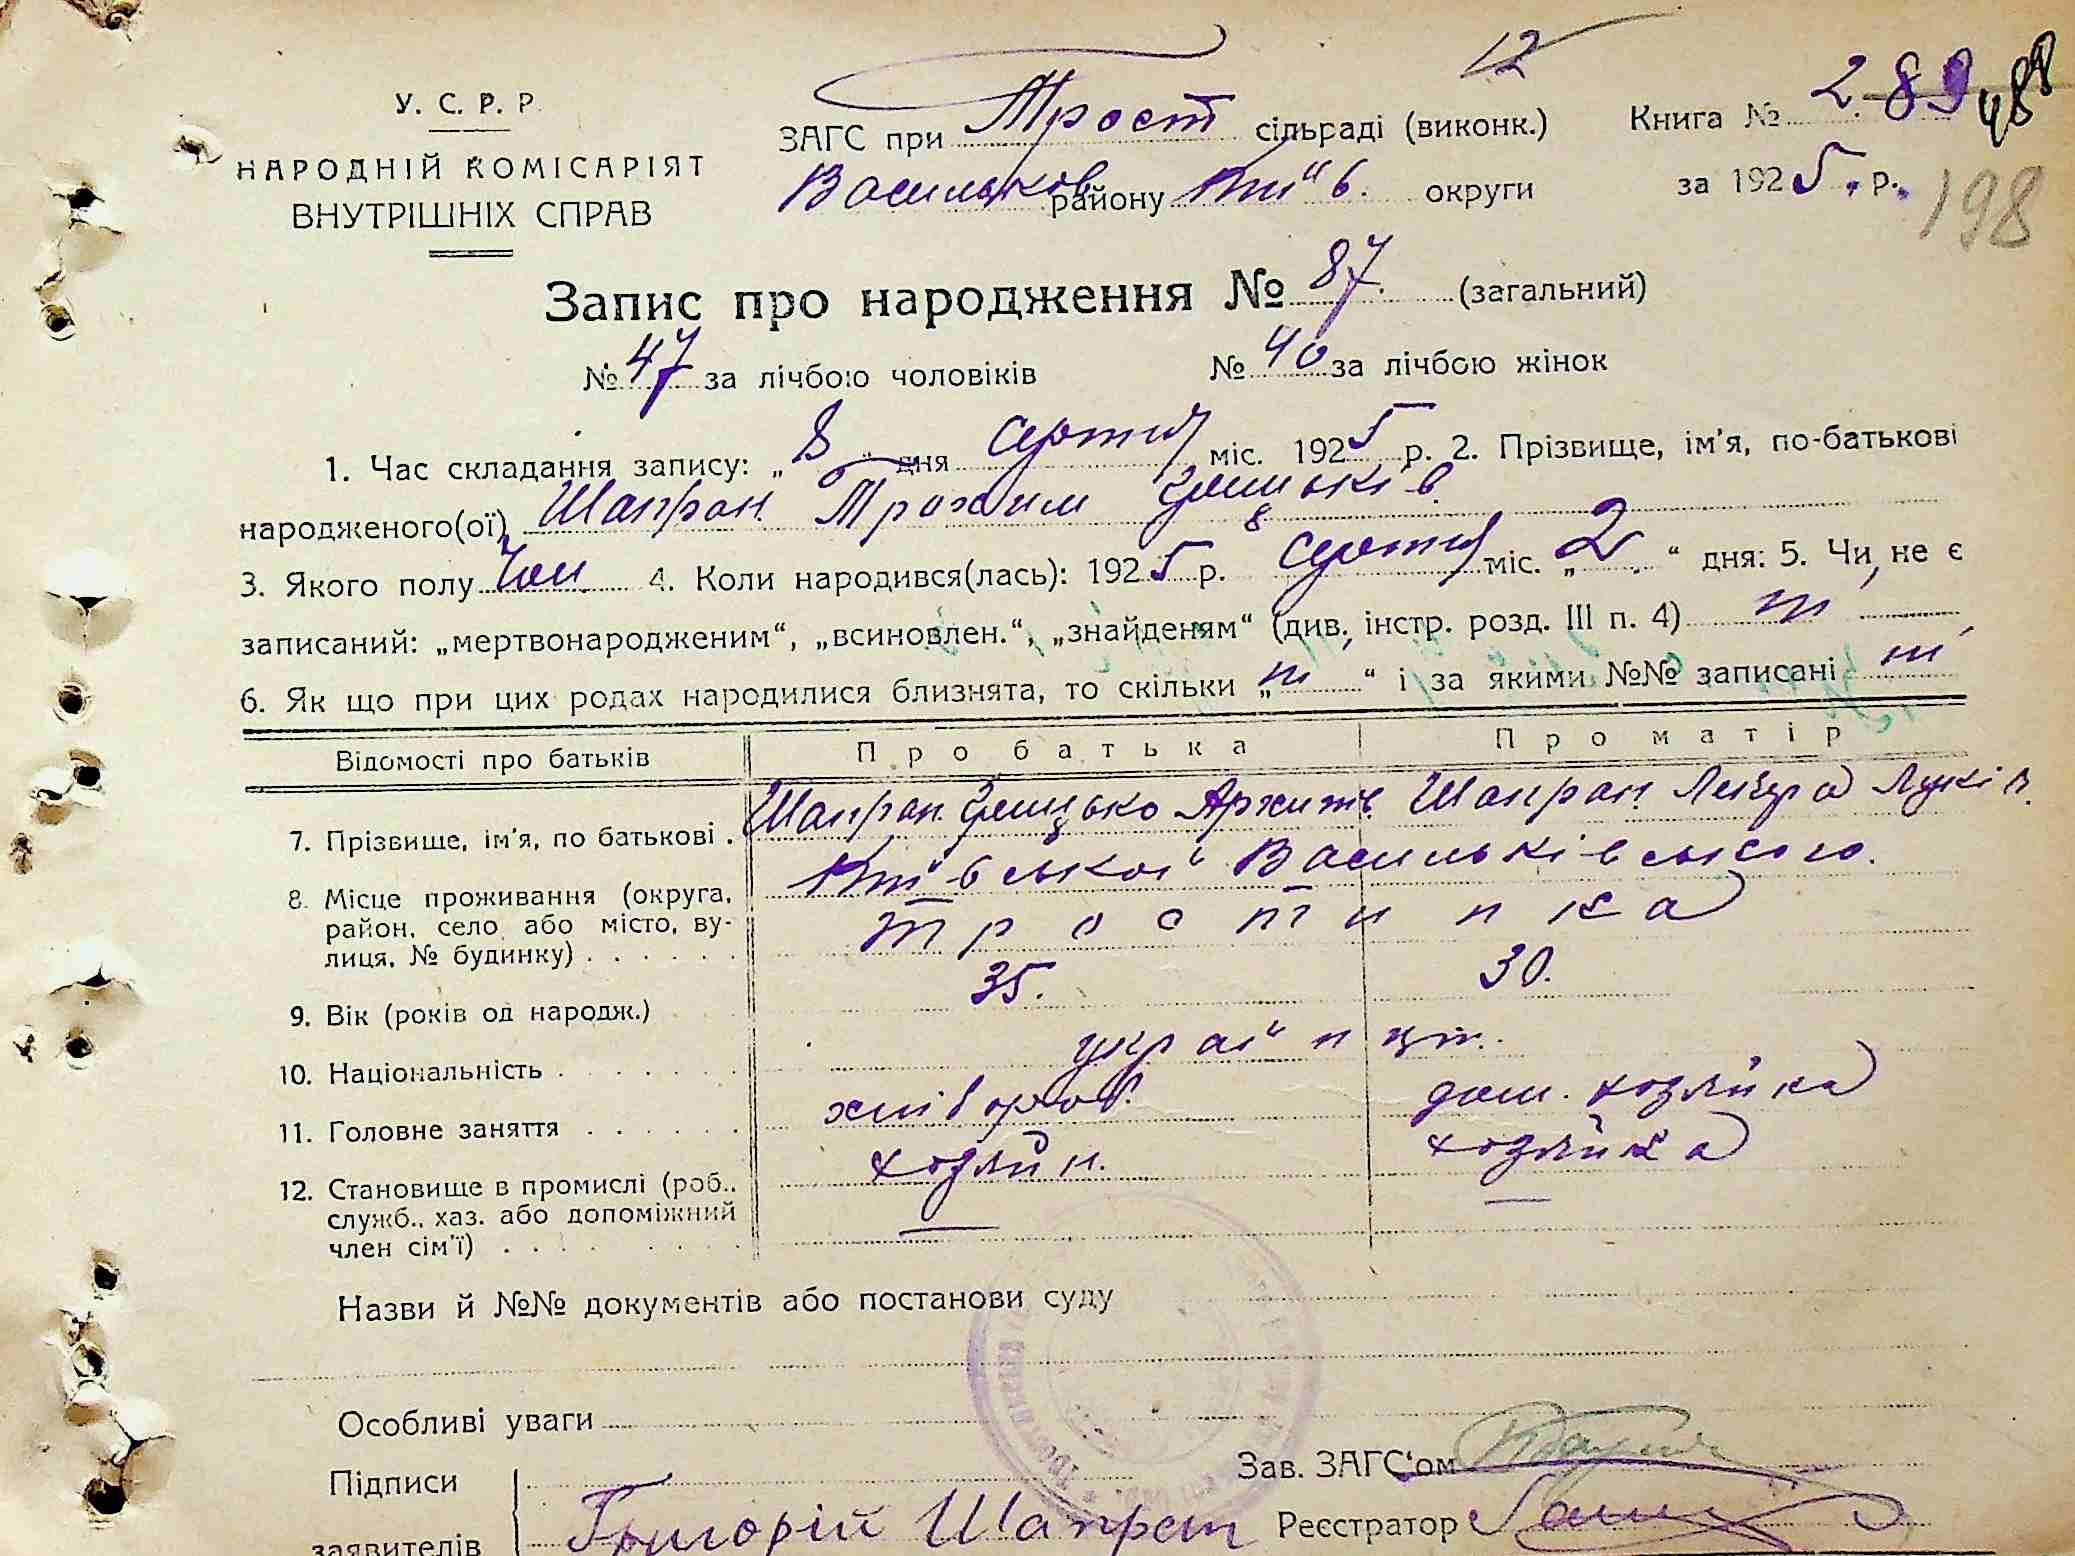 12
У. С. Р. Р.
НАРОДНІЙ КОМІСАРІЯТ
ВНУТРІШНІХ СПРАВ
ЗАГС при Трост сільраді (виконк.)
Васильков району Київ. округи
Книга № 289 488
за 1925. р. 198
Запис про народження № 87. (загальний)
№ 47 за лічбою чоловіків № 40 за лічбою жінок
1. Час складання запису: „8“ дня серпня міс. 1925 р. 2. Прізвище, ім'я, по-батькові
народженого(ої) Шапран Трохим Грицьків.
3. Якого полу Чол. 4. Коли народився(лась): 1925 р. серпня міс. „2.“ дня: 5. Чи не є
записаний: „мертвонародженим“, „всиновлен.“, „знайденям“ (див. інстр. розд. III п. 4) ні
6. Як що при цих родах народилися близнята, то скільки „ні“ і за якими №№ записані ні
Відомості про батьків Про батька Про матір
7. Прізвище, ім'я, по батькові . Шапран Грицько Шапран Лук'ів.
8. Місце проживання (округа, район, село або місто, вулиця, № будинку) . . . . . . Київської Васильківського.
Тростинка
9. Вік (років од народж.) 35. 30.
10. Національність . . . . . . . україн ці.
11. Головне заняття . . . . . . хлібороб. дом. хозяйка
12. Становище в промислі (роб., служб., хаз. або допоміжний член сім'ї) . . . . . . . хозяїн. хозяйка
Назви й №№ документів або постанови суду
Особливі уваги
Підписи
заявителів Григорій Шапран
Зав. ЗАГС'ом
Реєстратор